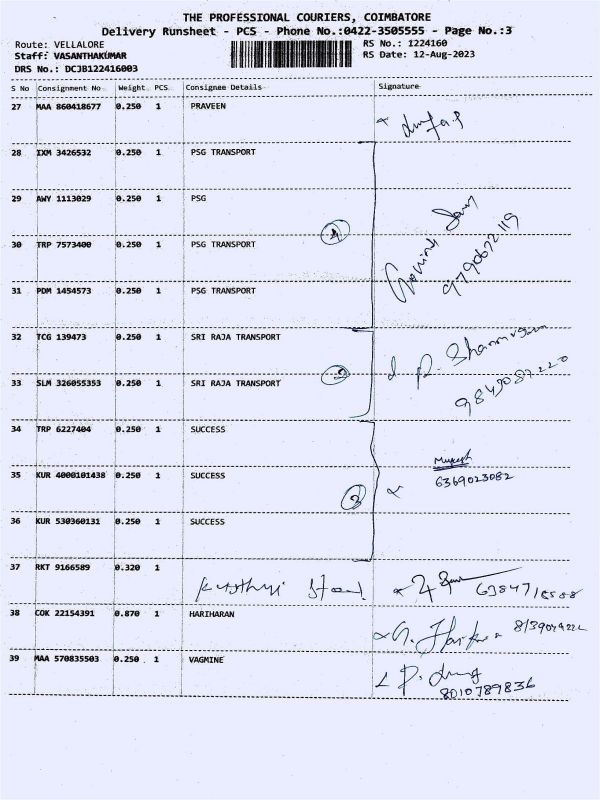 THE PROFESSIONAL COURIERS, COIMBATORE
Delivery Runsheet - PCS - Phone No.:0422-3505555 - Page No.:3
Route: VELLALORE RS No.: 1224160
Staff: VASANTHAKUMAR RS Date: 12-Aug-2023
DRS No.: DCJB122416003
S No Consignment No Weight PCS Consignee Details Signature
27 MAA 860418677 0.250 1 PRAVEEN
28 IXM 3426532 0.250 1 PSG TRANSPORT
29 AWY 1113029 0.250 1 PSG
4
Govind
9790672119
30 TRP 7573400 0.250 1 PSG TRANSPORT
31 PDM 1454573 0.250 1 PSG TRANSPORT
32 TCG 139473 0.250 1 SRI RAJA TRANSPORT
2
P. Shanmugam
33 SLM 326055353 0.250 1 SRI RAJA TRANSPORT
34 TRP 6227404 0.250 1 SUCCESS
35 KUR 4000101438 0.250 1 SUCCESS
3
Mugesh
6369023082
36 KUR 530360131 0.250 1 SUCCESS
37 RKT 9166589 0.320 1
38 COK 22154391 0.870 1 HARIHARAN
39 MAA 570835503 0.250 1 VAGMINE
8010789836